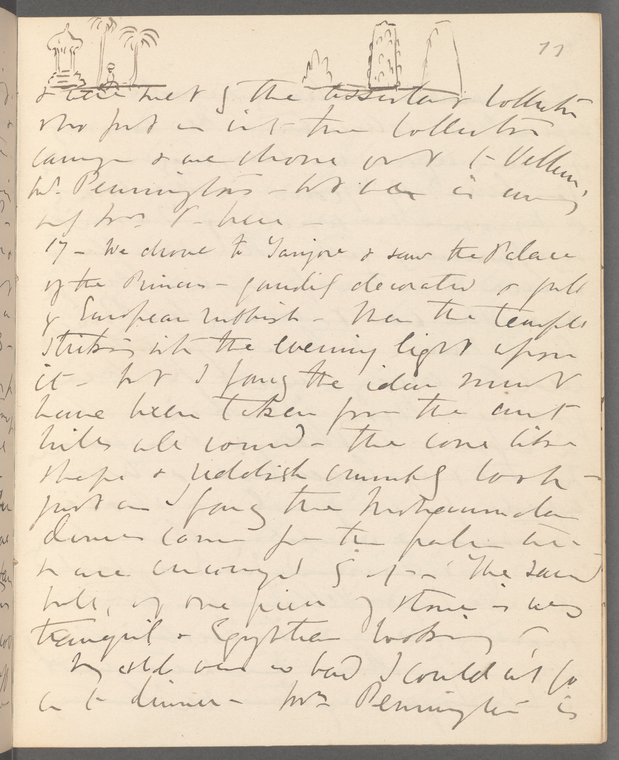 77
& were met by the Assistant Collector
who put us into the Collector's
carriage & we drove out to Vellum,
Mr. Pennington's
Mrs P. here –
17 – We drove to Tanjore & saw the Palace
of the Princes – gaudily decorated & full
of European rubbish – then the temple
striking with the evening light upon
it – but I fancy the idea must
have been taken from the ant
hills all round – the cone like
shape & reddish crumbly look –
just as I fancy the Mohammedan
domes came from the palm trees –
The sacred
bull, of one piece of stone is very
tranquil & Egyptian looking
My cold was so bad I could not go
in to dinner – Mrs Pennington is